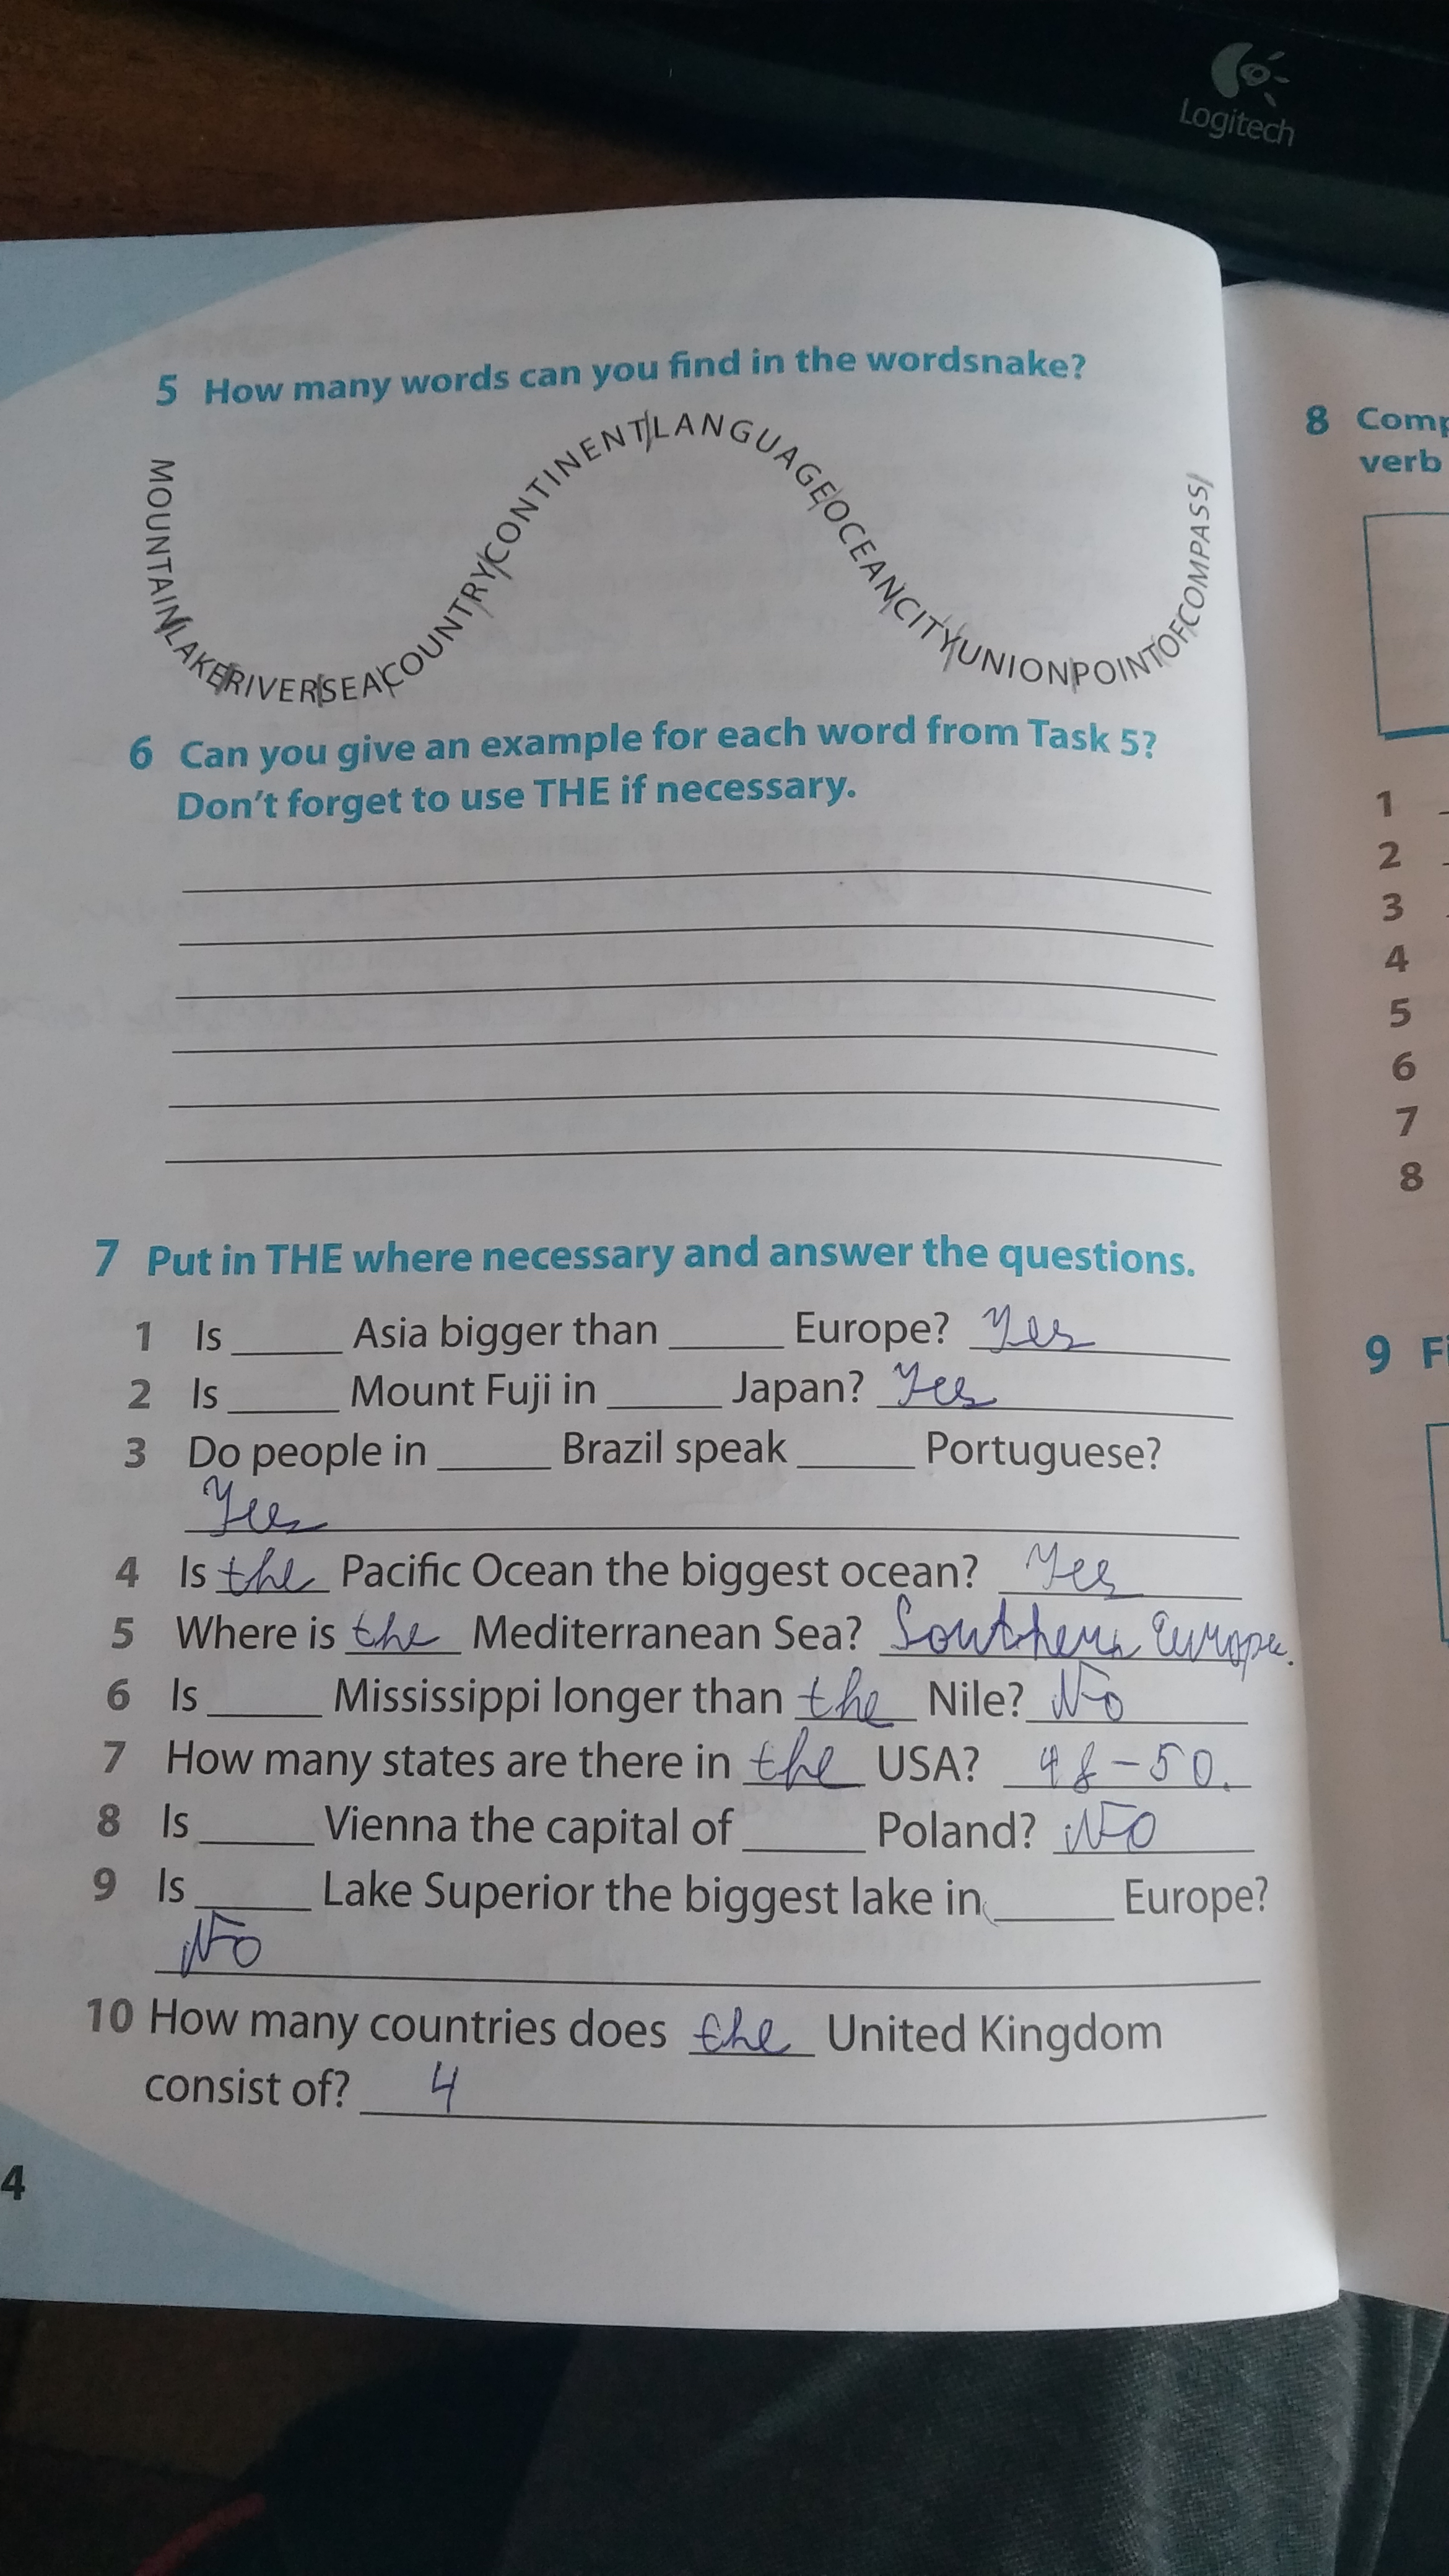 Logitech
5 How many words can you find in the wordsnake?
MOUNTAIN/LAKE/RIVER/SEA/COUNTRY/CONTINENT/LANGUAGE/OCEAN/CITY/UNION/POINTOFCOMPASS/
6 Can you give an example for each word from Task 5?
Don't forget to use THE if necessary.
7 Put in THE where necessary and answer the questions.
1 Is _____ Asia bigger than _____ Europe? Yes
2 Is _____ Mount Fuji in _____ Japan? Yes
3 Do people in _____ Brazil speak _____ Portuguese?
Yes
4 Is the Pacific Ocean the biggest ocean? Yes
5 Where is the Mediterranean Sea? Southern Europe.
6 Is _____ Mississippi longer than the Nile? No
7 How many states are there in the USA? 48-50.
8 Is _____ Vienna the capital of _____ Poland? No
9 Is _____ Lake Superior the biggest lake in _____ Europe?
No
10 How many countries does the United Kingdom
consist of? 4
4
8 Comp
verb
1
2
3
4
5
6
7
8
9